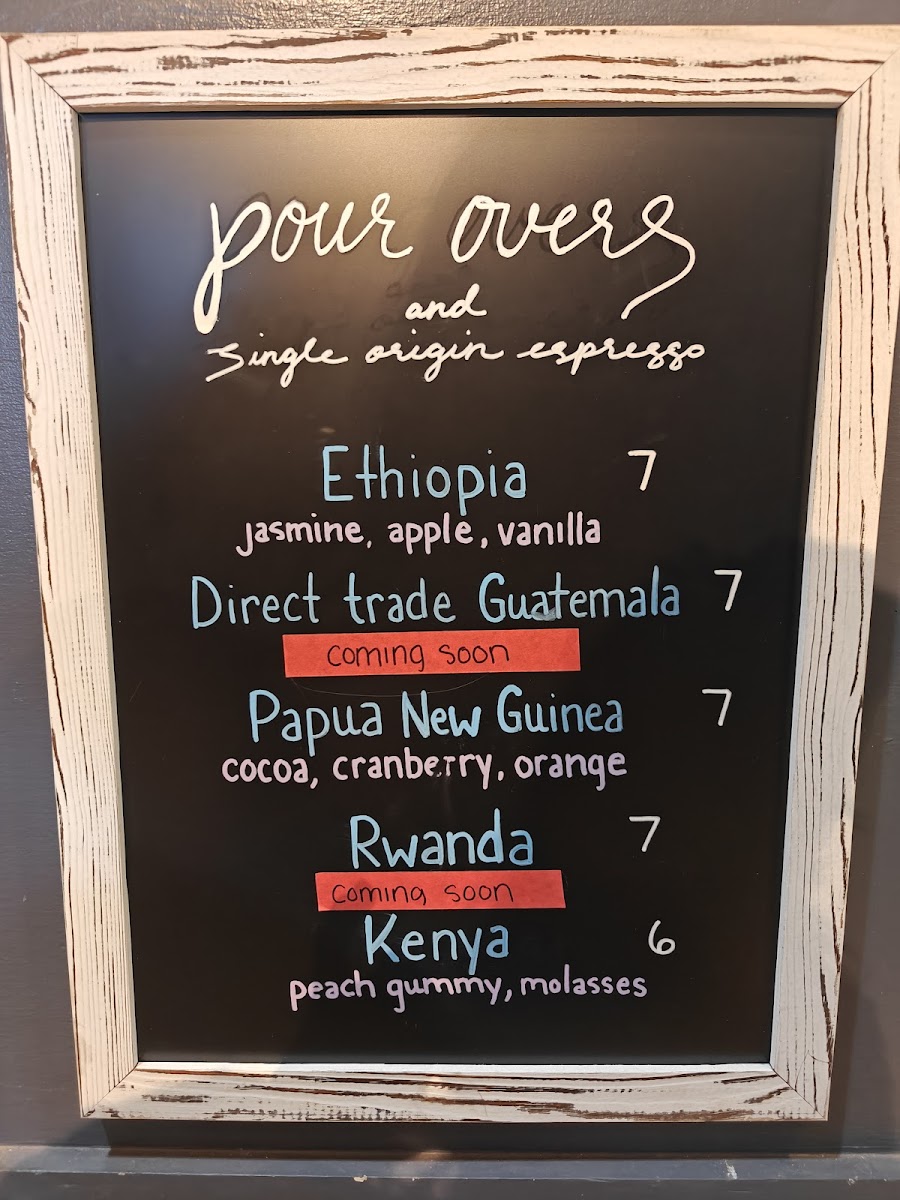 pour overs
and
single origin espresso
Ethiopia 7
jasmine, apple, vanilla
Direct trade Guatemala 7
coming soon
Papua New Guinea 7
cocoa, cranberry, orange
Rwanda 7
coming soon
Kenya 6
peach gummy, molasses